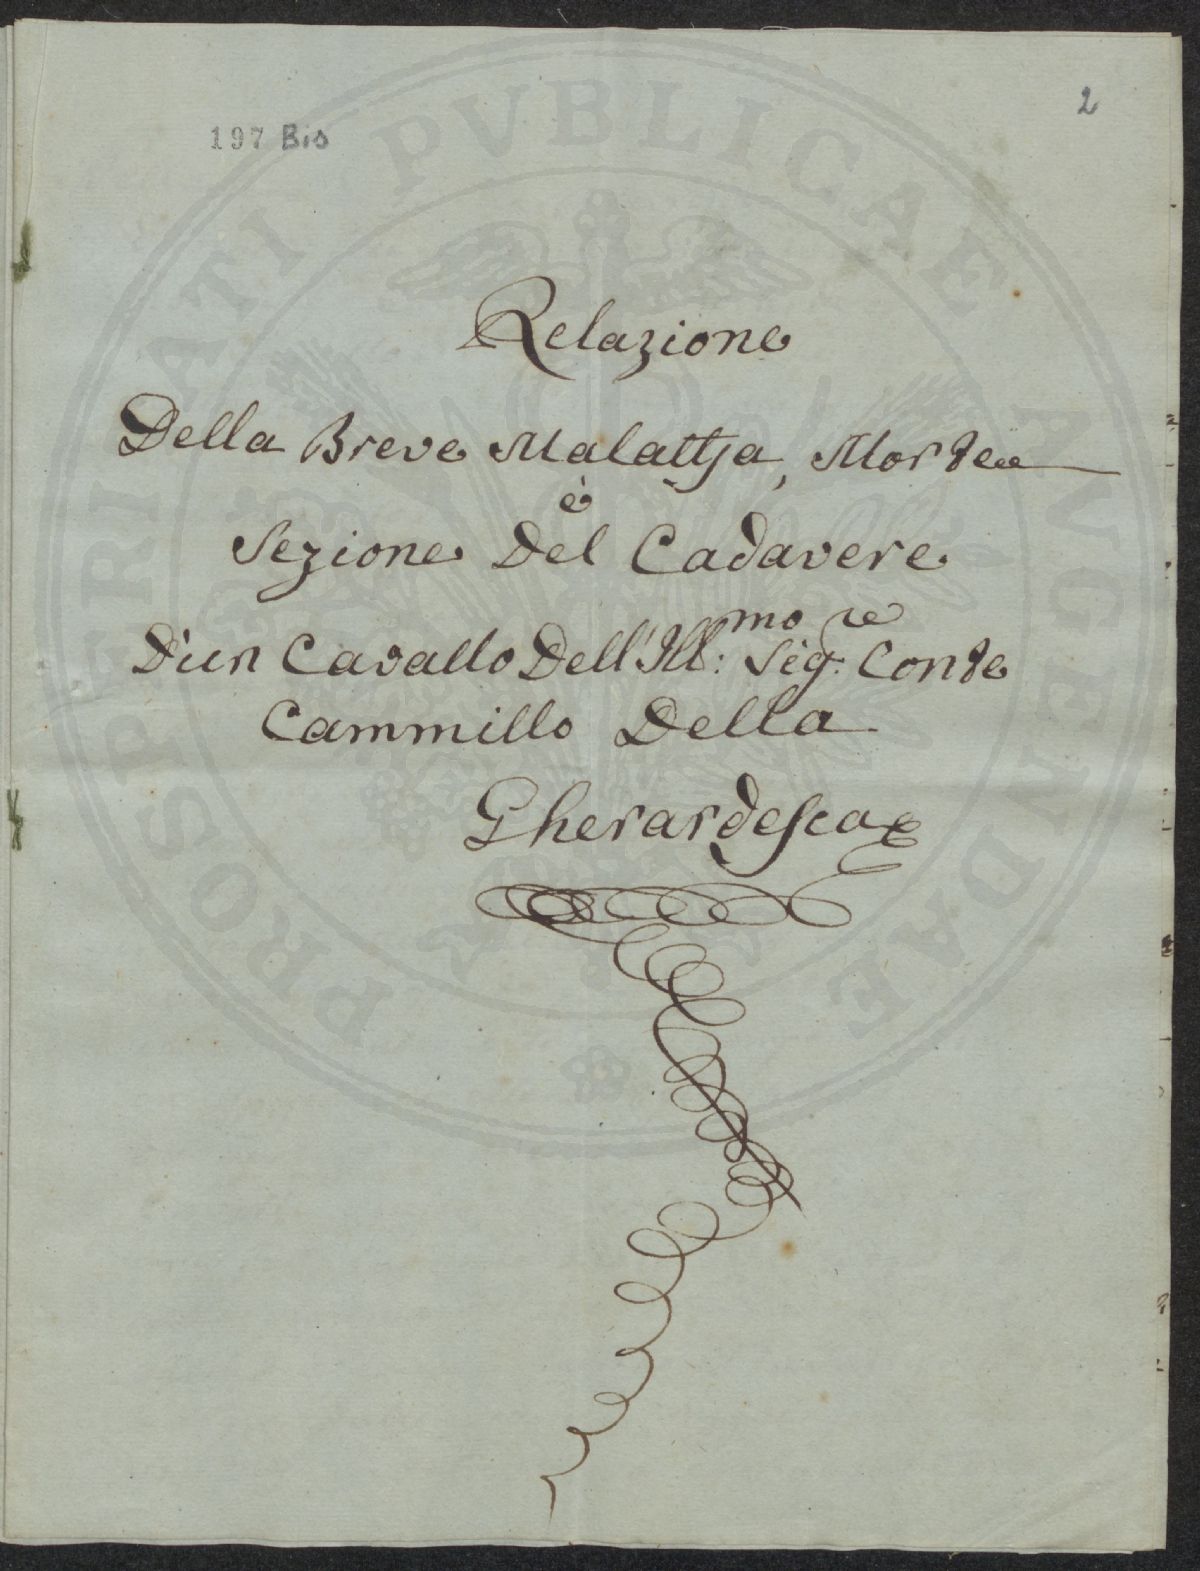 2
197 Bis
PROSPERITATI PVBLICAE AVGENDAE
Relazione
Della Breve Malattja, Morte
è
Sezione Del Cadavere
D'un Cavallo Dell'Ill:mo Sig:re Conte
Cammillo Della
Gherardesca